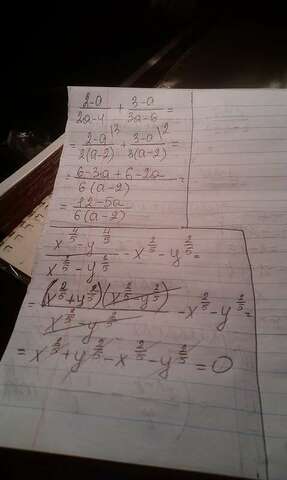 2-a/2a-4 + 3-a/3a-6 =
= 2-a\3/2(a-2) + 3-a\2/3(a-2) =
= 6-3a+6-2a/6(a-2) =
= 12-5a/6(a-2)
x^(4/5)-y^(4/5)/x^(2/5)-y^(2/5) - x^(2/5) - y^(2/5) =
= (x^(2/5)+y^(2/5))(x^(2/5)-y^(2/5))/x^(2/5)-y^(2/5) - x^(2/5) - y^(2/5) =
= x^(2/5)+y^(2/5)-x^(2/5)-y^(2/5) = 0